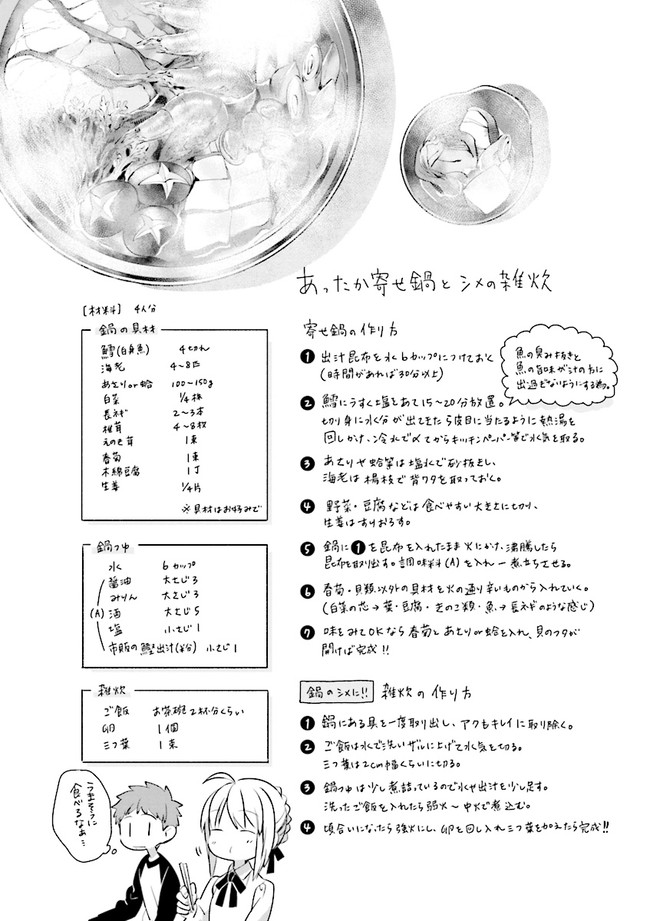 あったか寄せ鍋とシメの雑炊
[材料] 4人分
鍋の具材
鱈(白身魚) 4切れ
海老 4~8匹
あさりor蛤 100~150g
白菜 1/4株
長ネギ 2~3本
椎茸 4~8枚
えのき茸 1束
春菊 1束
木綿豆腐 1丁
生姜 1/4片
※具材はお好みで
鍋つゆ
水 6カップ
醤油 大さじ3
みりん 大さじ3
(A) 酒 大さじ5
塩 小さじ1
市販の鰹出汁(粉) 小さじ1
雑炊
ご飯 お茶碗2杯分くらい
卵 1個
三つ葉 1束
寄せ鍋の作り方
1 出汁昆布を水6カップにつけておく
(時間があれば30分以上)
2 鱈にうすく塩をあて15~20分放置。
切り身に水分が出てきたら皮目に当たるように熱湯を
回しかけ、冷水で〆てからキッチンペーパー等で水気を取る。
魚の臭み抜きと
魚の旨味が汁の方に
出過ぎないようにする為。
3 あさりや蛤等は塩水で砂抜きし、
海老は楊枝で背ワタを取っておく。
4 野菜・豆腐などは食べやすい大きさに切り、
生姜はすりおろす。
5 鍋に1を昆布を入れたまま火にかけ、沸騰したら
昆布を取り出す。調味料(A)を入れ一煮立ちさせる。
6 春菊・貝類以外の具材を火の通り辛いものから入れていく。
(白菜の芯→葉・豆腐・きのこ類・魚→長ネギのような感じ)
7 味をみてOKなら春菊とあさりor蛤を入れ、貝のフタが
開けば完成!!
鍋のシメに!! 雑炊の作り方
1 鍋にある具を一度取り出し、アクもキレイに取り除く。
2 ご飯は水で洗いザルに上げて水気を切る。
三つ葉は2cm幅くらいに切る。
3 鍋つゆは少し煮詰っているので水や出汁を少し足す。
洗ったご飯を入れたら弱火~中火で煮込む。
4 頃合いになったら強火にし、卵を回し入れ三つ葉を加えたら完成!!
うまそうに
食べるなぁ…